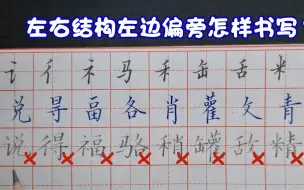 左右结构左边偏旁怎样书写？
讠 彳 礻 马 禾 缶 舌 米
兑 得 福 各 肖 雚 文 青
说 得 福 骆 稍 罐 敌 精